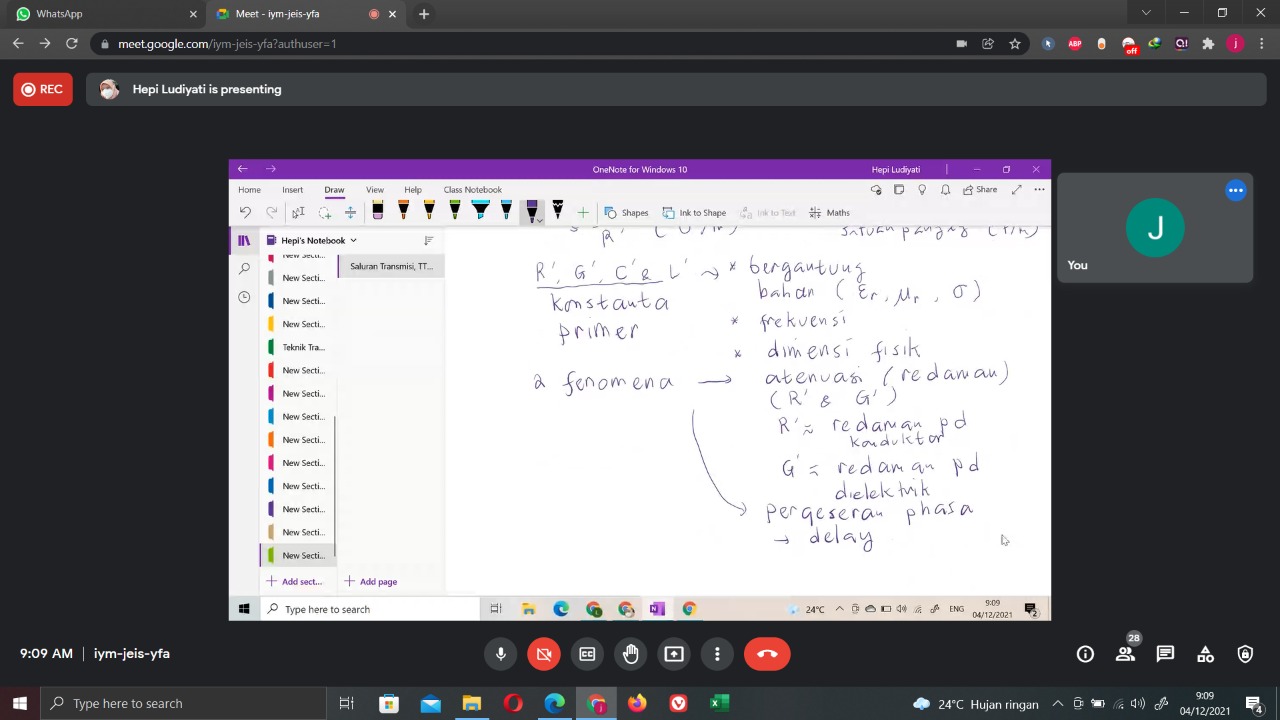 WhatsApp
Meet - iym-jeis-yfa
meet.google.com/iym-jeis-yfa?authuser=1
ABP
off
Q!
j
REC
Hepi Ludiyati is presenting
OneNote for Windows 10
Hepi Ludiyati
Home Insert Draw View Help Class Notebook
Share
Shapes Ink to Shape Ink to Text Maths
Hepi's Notebook
New Secti...
New Secti...
New Secti...
New Secti...
Teknik Tra...
New Secti...
New Secti...
New Secti...
New Secti...
New Secti...
New Secti...
New Secti...
New Secti...
New Secti...
+ Add sect...
Saluran Transmisi, TT...
+ Add page
satuan panjang
R', G', C' & L' ~> * bergantung
bahan ( εr, μr, σ )
konstanta
primer
* frekuensi
* dimensi fisik
2 fenomena → atenuasi (redaman)
( R' & G' )
R' ≈ redaman pd
konduktor
G' ≈ redaman pd
dielektrik
pergeseran phasa
→ delay
Type here to search
24°C
ENG
9:09
04/12/2021
2
J
You
9:09 AM | iym-jeis-yfa
28
Type here to search
24°C Hujan ringan
9:09
04/12/2021
4